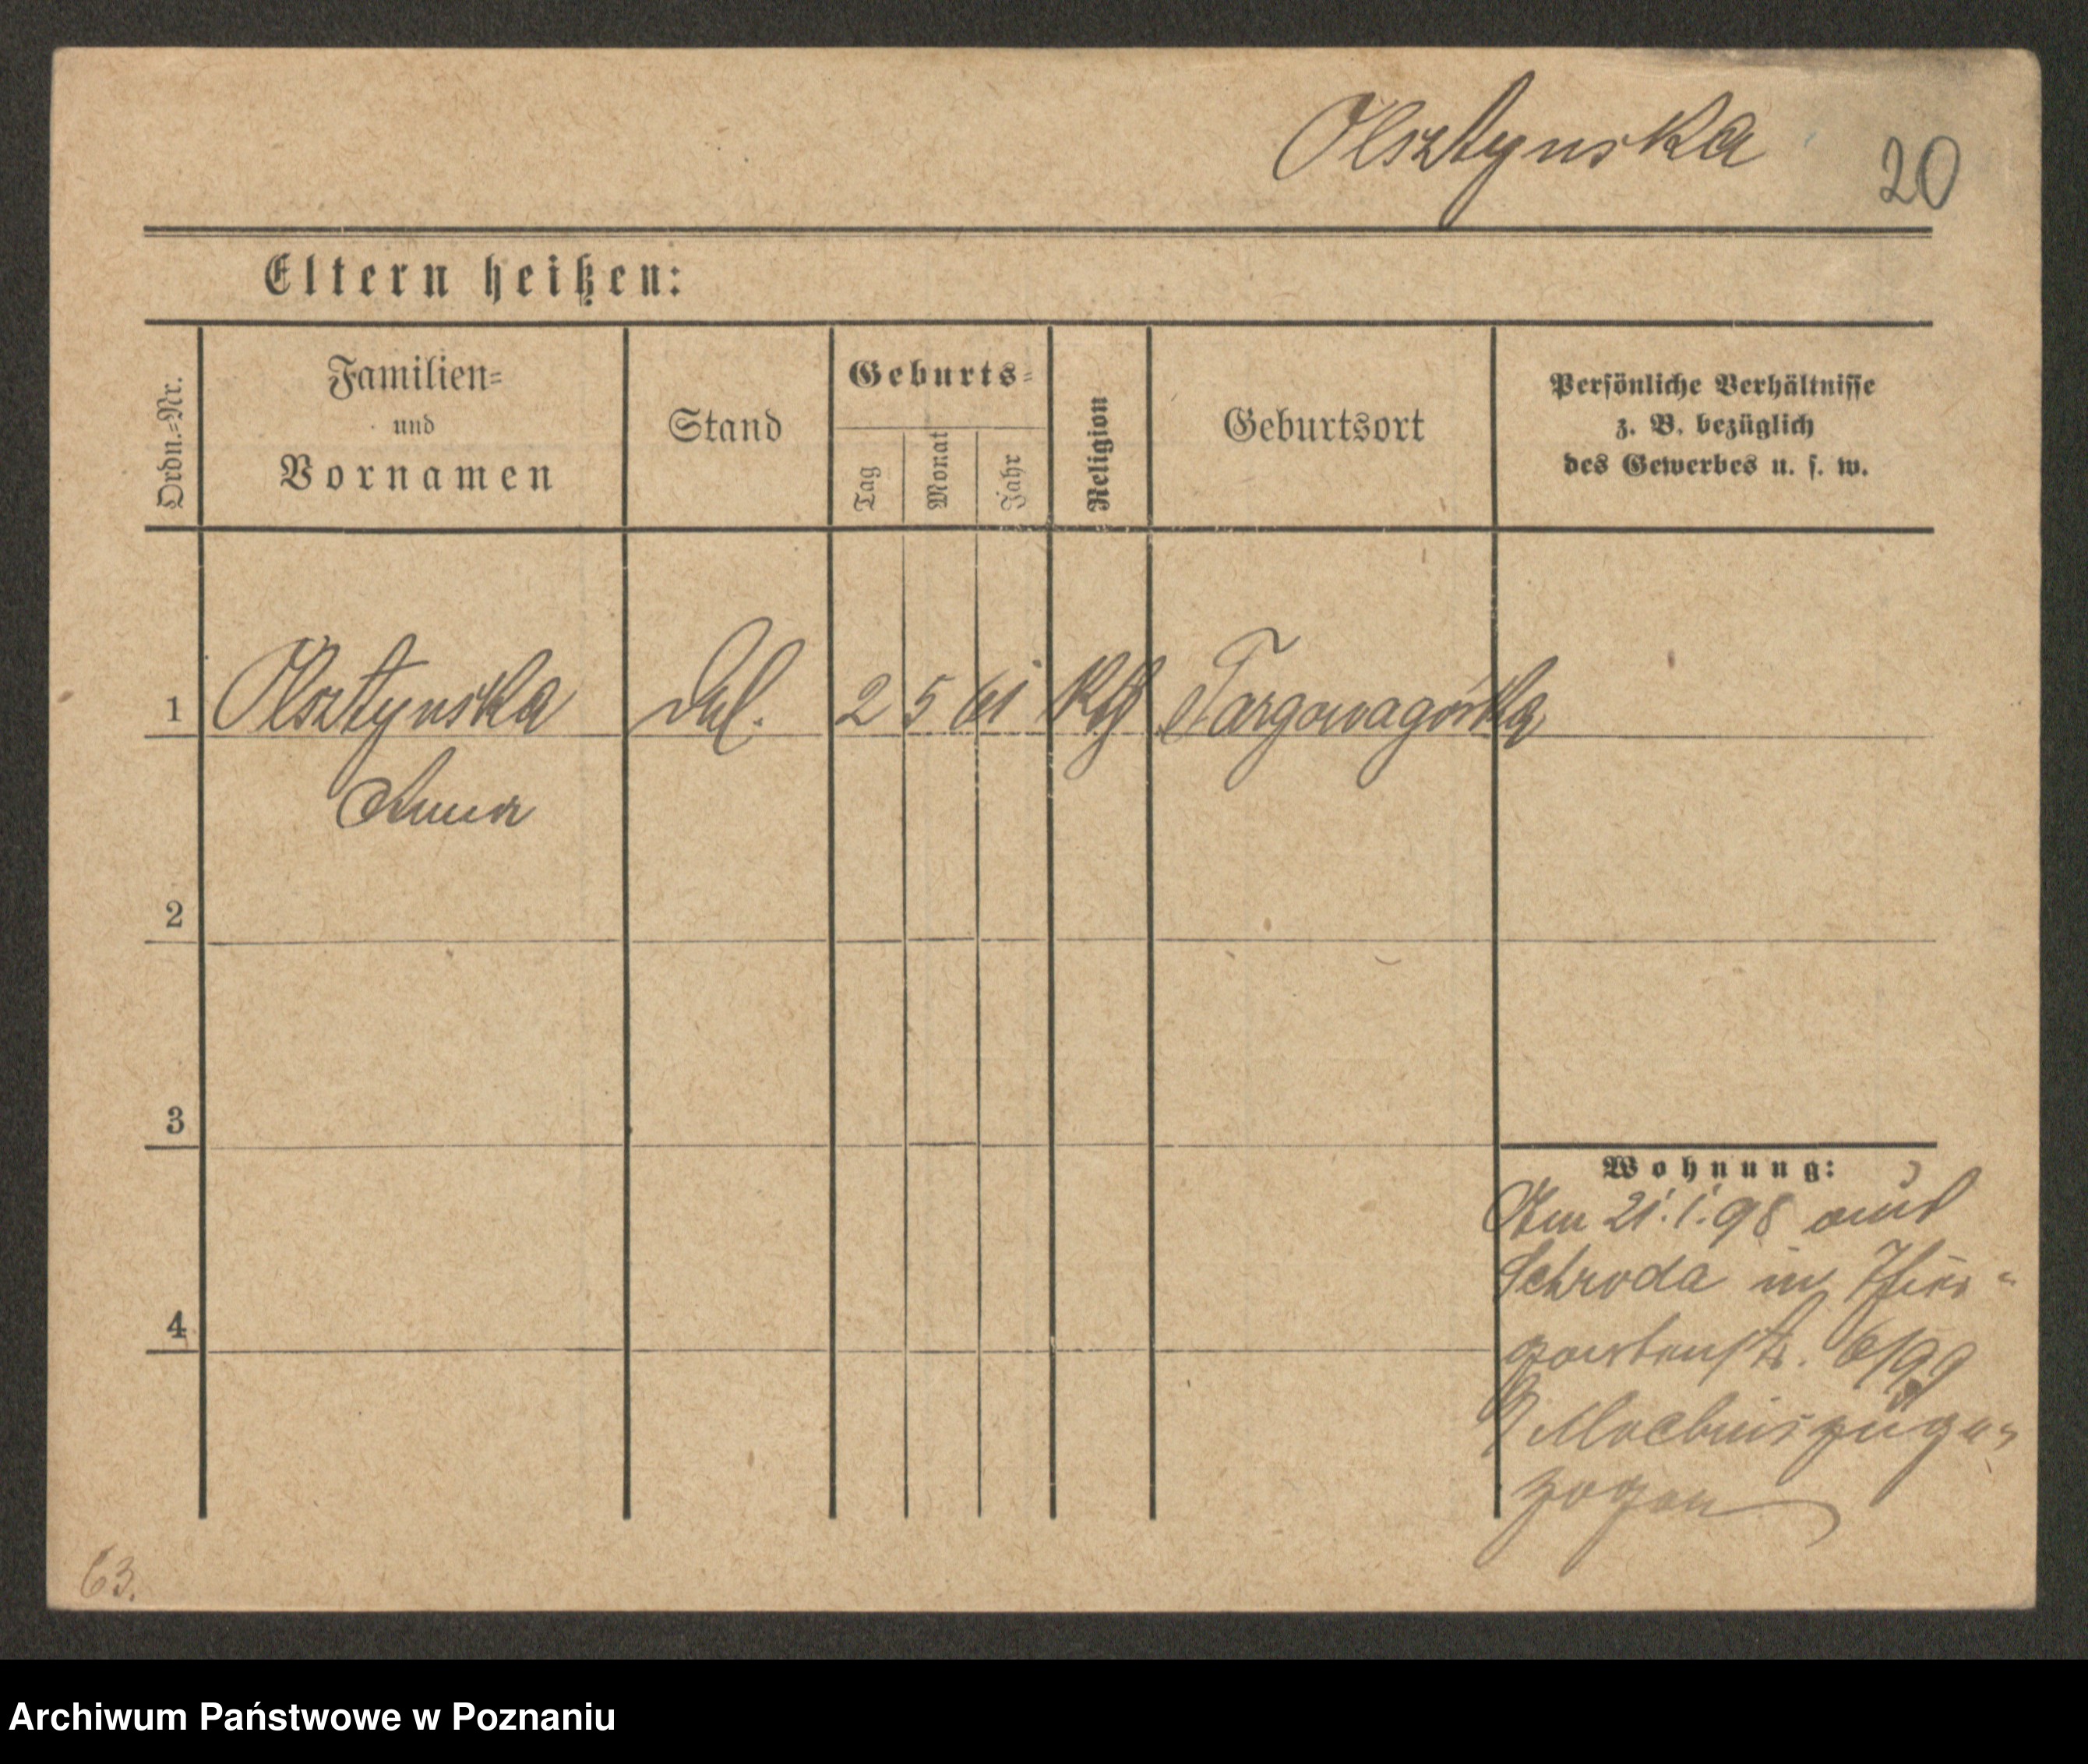 Olsztynska
20
Eltern heißen:
Ordn.-Nr.
Familien-
und
Vornamen
Stand
Geburts-
Tag
Monat
Jahr
Religion
Geburtsort
Persönliche Verhältnisse
z. B. bezüglich
des Gewerbes u. s. w.
1 Olsztynska 2 5 61 Kth Targowagórka
Anna
2
3
Wohnung:
Am 21.1.98 aus
Schroda in Thier-
4
gartenstr. 6/99
zuge-
zogen
63.
Archiwum Państwowe w Poznaniu